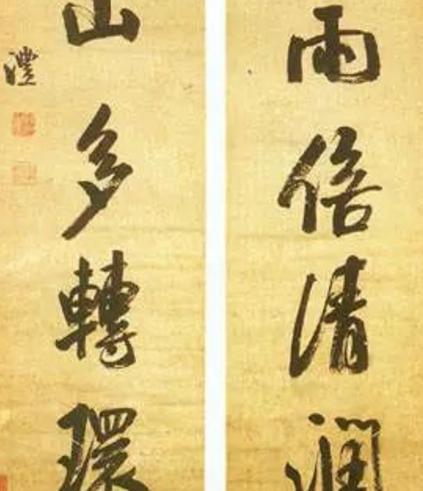 雨倍清潤
山多轉環
澧